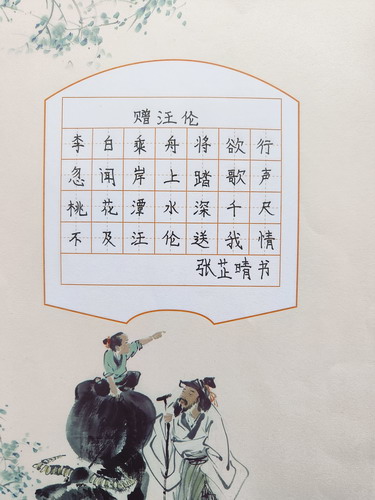 赠汪伦
李白乘舟将欲行
忽闻岸上踏歌声
桃花潭水深千尺
不及汪伦送我情
张芷晴书